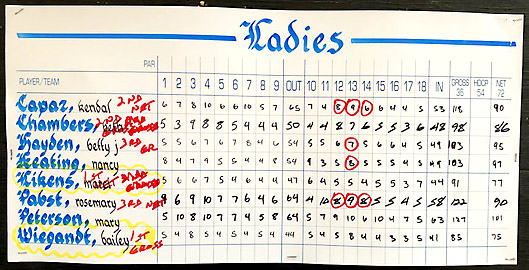 Ladies
PAR
PLAYER/TEAM 1 2 3 4 5 6 7 8 9 OUT 10 11 12 13 14 15 16 17 18 IN GROSS 36 HDCP 54 NET 72
Capaz, kendal 2ND NET 6 7 8 10 6 6 10 5 7 65 7 4 8 9 6 6 4 4 5 53 118 90
Chambers, 5 3 9 8 8 5 4 4 4 50 4 4 8 7 6 5 5 3 6 48 98 86
Hayden, betty j 3RD GR. 5 5 6 7 6 7 8 4 6 54 5 2 6 7 5 7 5 4 8 49 103 95
Keating, nancy 8 4 7 9 5 5 4 4 8 54 9 3 5 8 5 5 5 4 5 49 103 97
Aikens, 5 6 6 7 5 4 6 4 4 47 6 4 5 5 4 5 5 3 7 44 91 77
Pabst, rosemary 3RD NET 6 6 9 10 7 7 6 4 6 64 10 4 8 9 8 4 5 5 5 58 122 90
Peterson, mary 5 8 10 8 10 7 7 4 5 64 5 7 9 10 6 10 4 7 5 63 127 101
Wiegandt, bailey 1ST GROSS 5 4 8 5 4 5 4 5 4 44 5 3 5 8 4 4 3 3 5 41 85 75